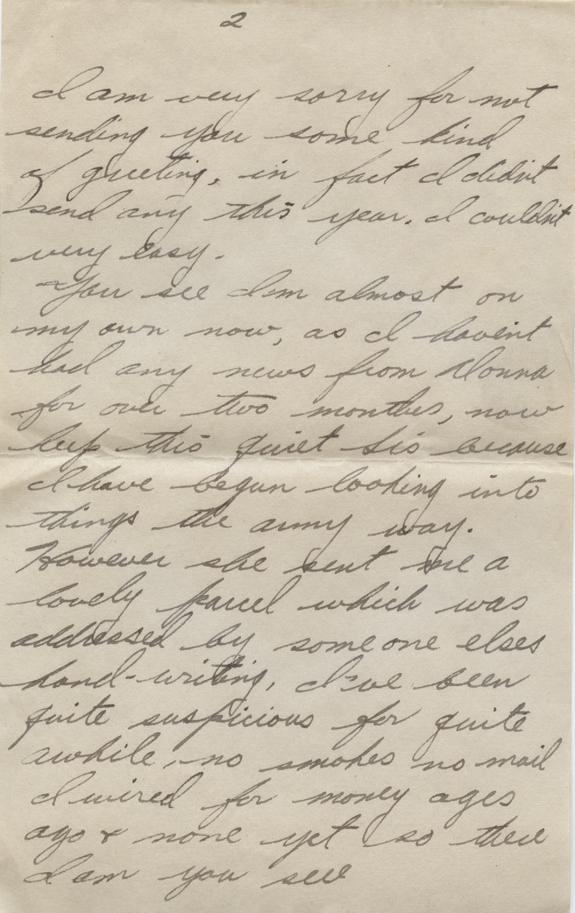 2
I am very sorry for not
sending you some kind
of greeting, in fact I didn't
send any this year. I couldn't
very easy.
You see I'm almost on
my own now, as I haven't
had any news from Donna
for over two months, now
keep this quiet Sis because
I have begun looking into
things the army way.
However she sent me a
lovely parcel which was
addressed by someone elses
hand-writing, I've been
quite suspicious for quite
awhile, no smokes no mail
I wired for money ages
ago & none yet so there
I am you see